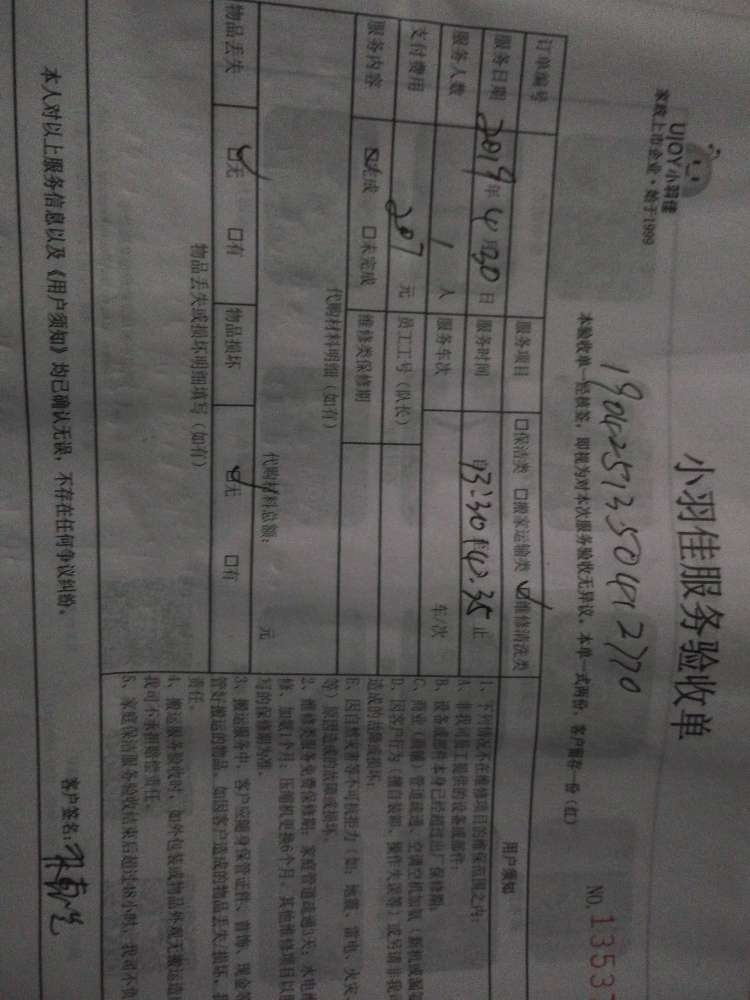 UJOY小羽佳
家政上市企业·始于1999
小羽佳服务验收单
NO.13537
本验收单一经核签，即视为对本次服务验收无异议。本单一式两份，客户留存一份（红）
订单编号
服务项目 □保洁类 □搬家运输类 ☑维修清洗类
服务日期 2019年4月30日 服务时间 13:30 14:35止
服务人数 1人 服务车次 车/次
支付费用 207元 员工工号（队长）
服务内容 ☑完成 □未完成 维修类保修期
代购材料明细（如有）
代购材料总额： 元
物品丢失 ☑无 □有 物品损坏 ☑无 □有
物品丢失或损坏明细填写（如有）
用户须知
1、下列情况不在维修项目的维保范围之内：
A、非我司员工提供的设备或部件；
B、设备或部件本身已经超过出厂保修期；
C、商业（商铺）管道疏通、空调空机加氨（新机或漏
D、因客户行为（擅自装卸、操作失误等）或另请非我
造成的故障或损坏；
E、因自然灾害等不可抗拒力（如：地震、雷电、火灾
等）原因造成的故障或损坏。
2、维修类服务免费保修期：家庭管道疏通3天；水电维
修、加氨1个月；压缩机更换6个月。其他维修项目以
写的保修期为准。
3、搬运服务中，客户应随身保管证件、首饰、现金等
管好搬运的物品。如因客户造成的物品丢失/损坏，
责任。
4、搬运服务验收时，如外包装或物品外观无搬运造
我司不承担赔偿责任。
5、家庭保洁服务验收结束后超过48小时，我司不负
本人对以上服务信息以及《用户须知》均已确认无误，不存在任何争议纠纷。
客户签名：